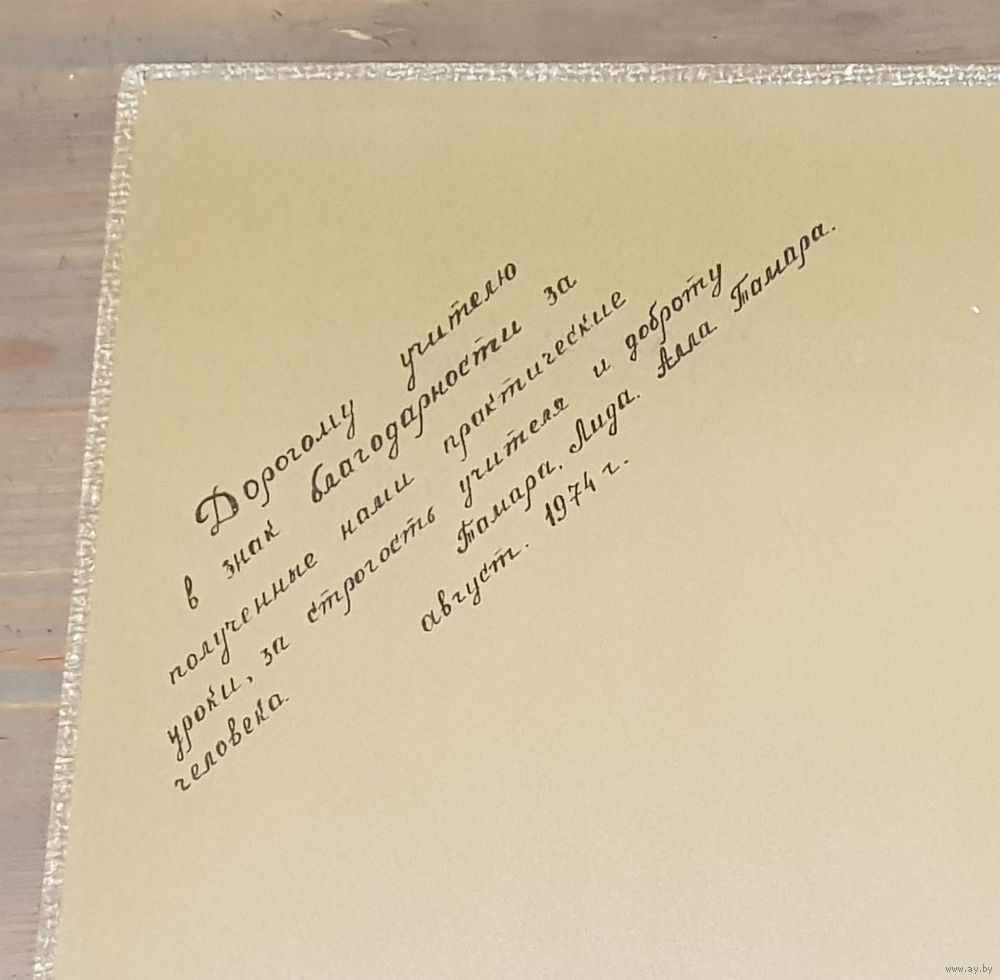 Дорогому учителю
в знак благодарности за
полученные нами практические
уроки, за строгость учителя и доброту
человека.
Тамара. Лида. Алла. Тамара.
август. 1974 г.
www.ay.by